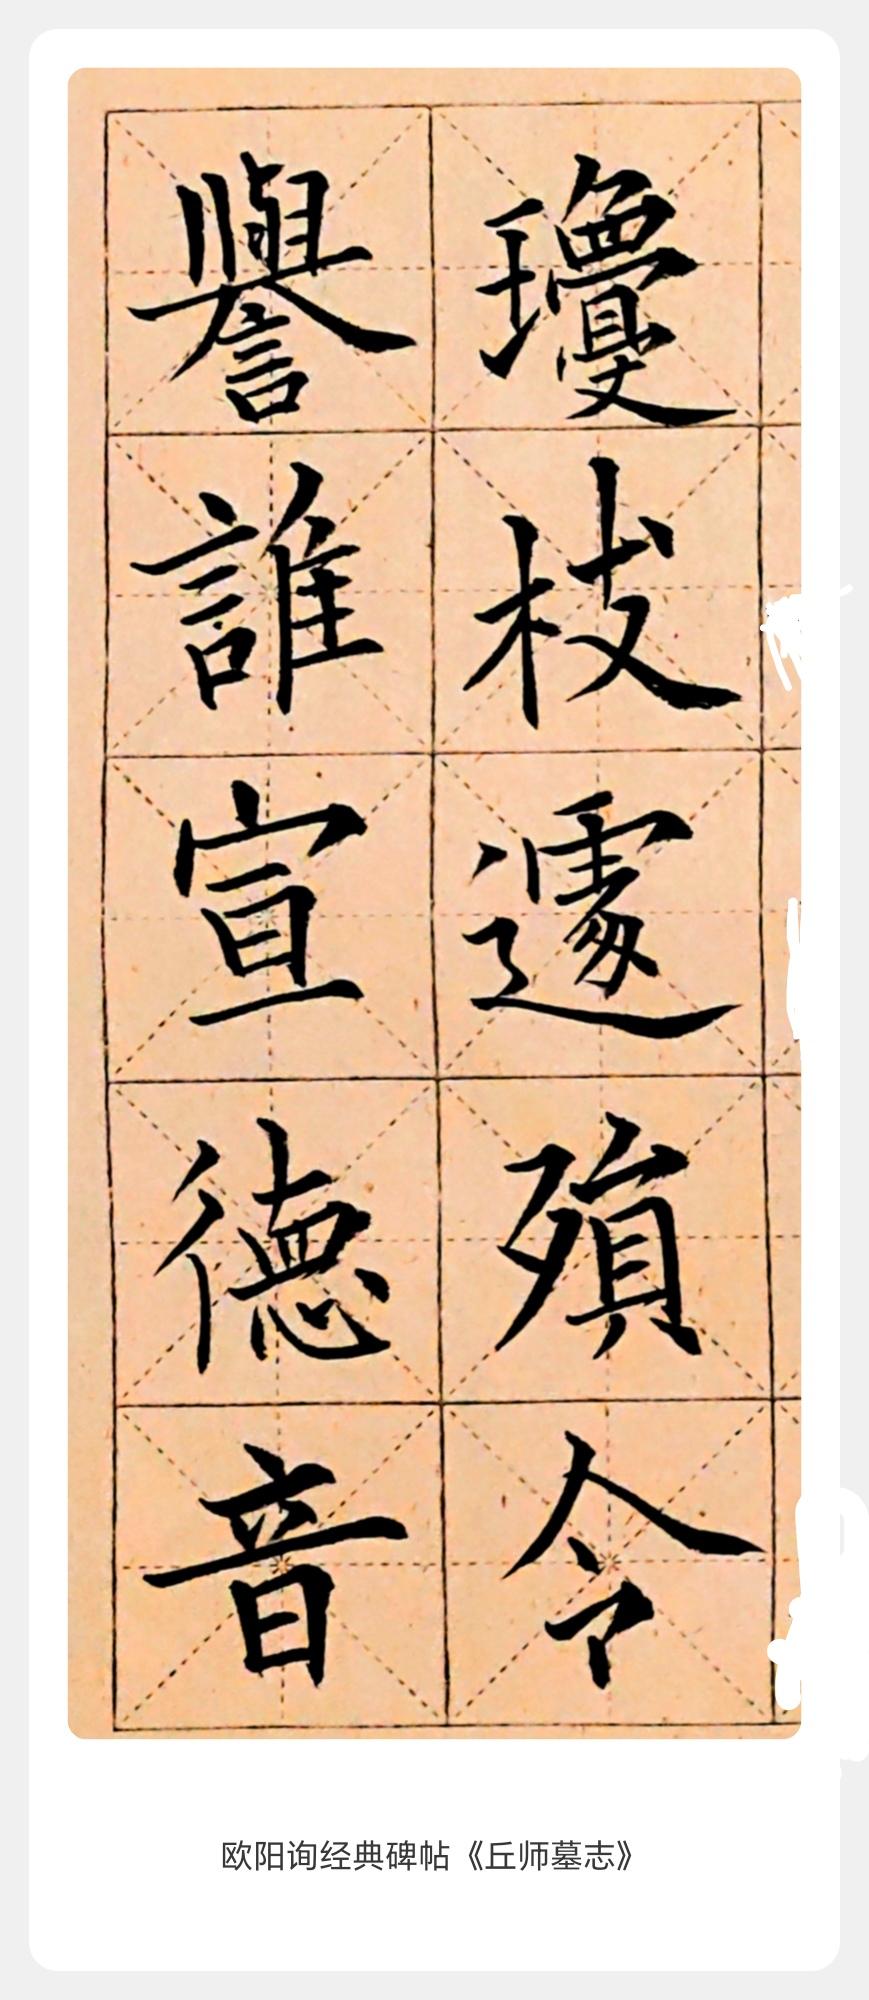 瓊枝遽殞令
譽誰宣德音
欧阳询经典碑帖《丘师墓志》